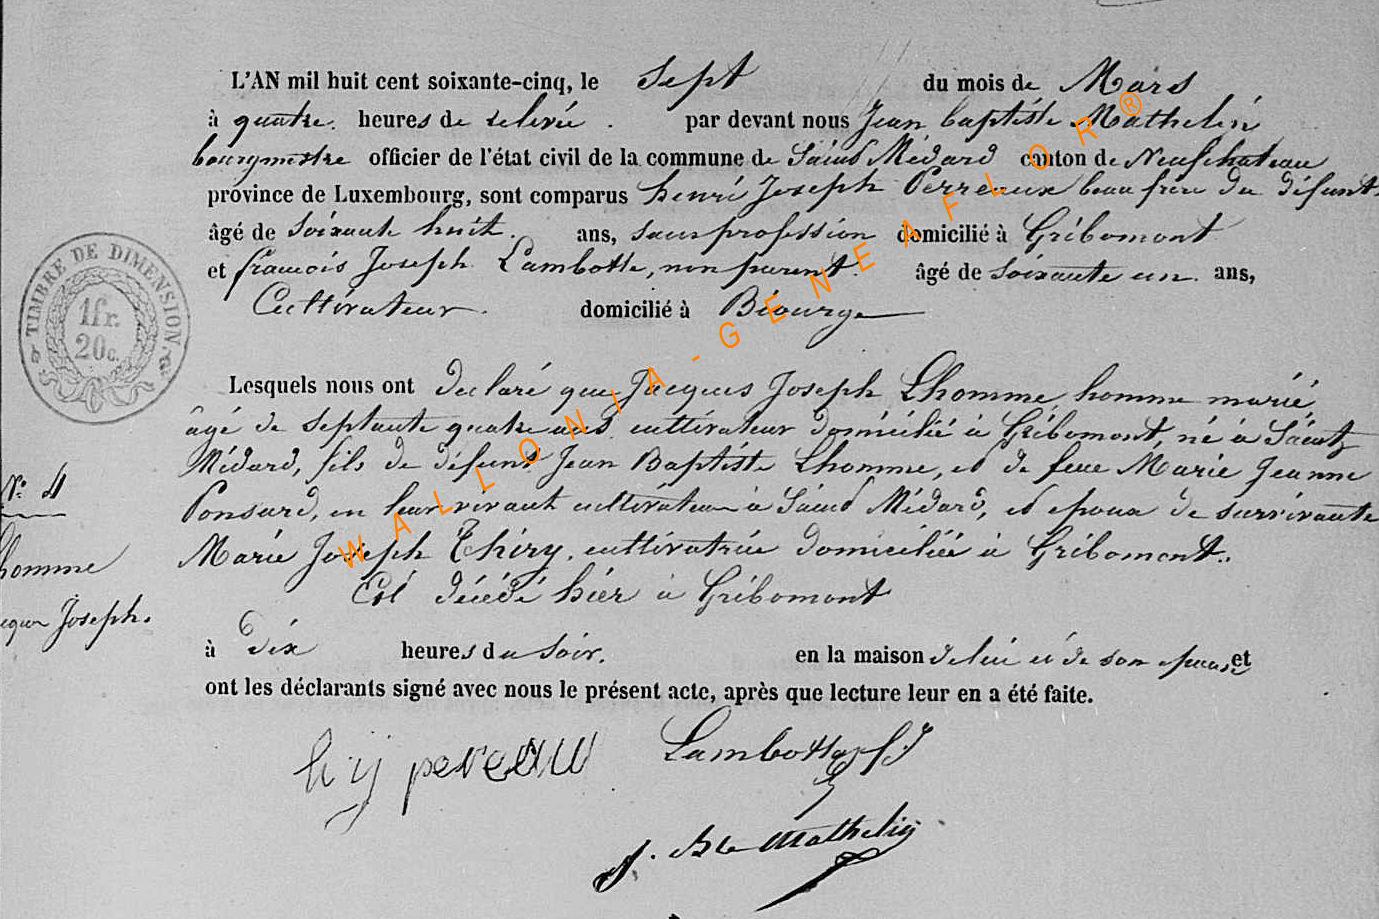 L'AN mil huit cent soixante-cinq, le Sept du mois de Mars
à quatre heures de relevée. par devant nous Jean baptiste Mathelin
bourgmestre officier de l'état civil de la commune de Saint Médard canton de Neufchateau
province de Luxembourg, sont comparus henri Joseph Perreaux beau frère du défunt
âgé de soixante huit. ans, sans profession domicilié à Gribomont
et françois Joseph Lambotte, non parent. âgé de soixante un ans,
Cultivateur. domicilié à Biourge
TIMBRE DE DIMENSION.
1fr.
20c.
Lesquels nous ont déclaré que Jacques Joseph Lhomme homme marié,
âgé de septante quatre ans cultivateur domicilié à Gribomont, né à Saint
Médard, fils de défunt Jean Baptiste Lhomme, et de feue Marie Jeanne
Ponsard, en leur vivant cultivateur à Saint Médard, et epoux de survivante
Marie Joseph Thiry, cultivatrice domiciliée à Gribomont.
Est décédé hier à Gribomont
N° 4
homme
Joseph.
à dix heures du soir. en la maison de lui et de son epouse, et
ont les déclarants signé avec nous le présent acte, après que lecture leur en a été faite.
h ÿ pereau Lambotte f J
J. Bte Mathelin
WALLONIA-GENEAFLOR®